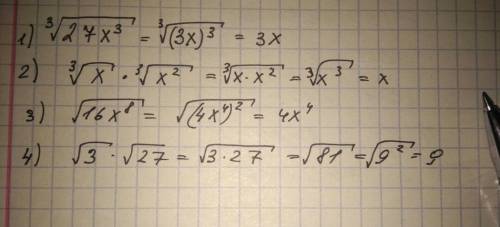 1) ∛27x³ = ∛(3x)³ = 3x
2) ∛x · ∛x² = ∛x·x² = ∛x³ = x
3) √16x⁸ = √(4x⁴)² = 4x⁴
4) √3 · √27 = √3·27 = √81 = √9² = 9